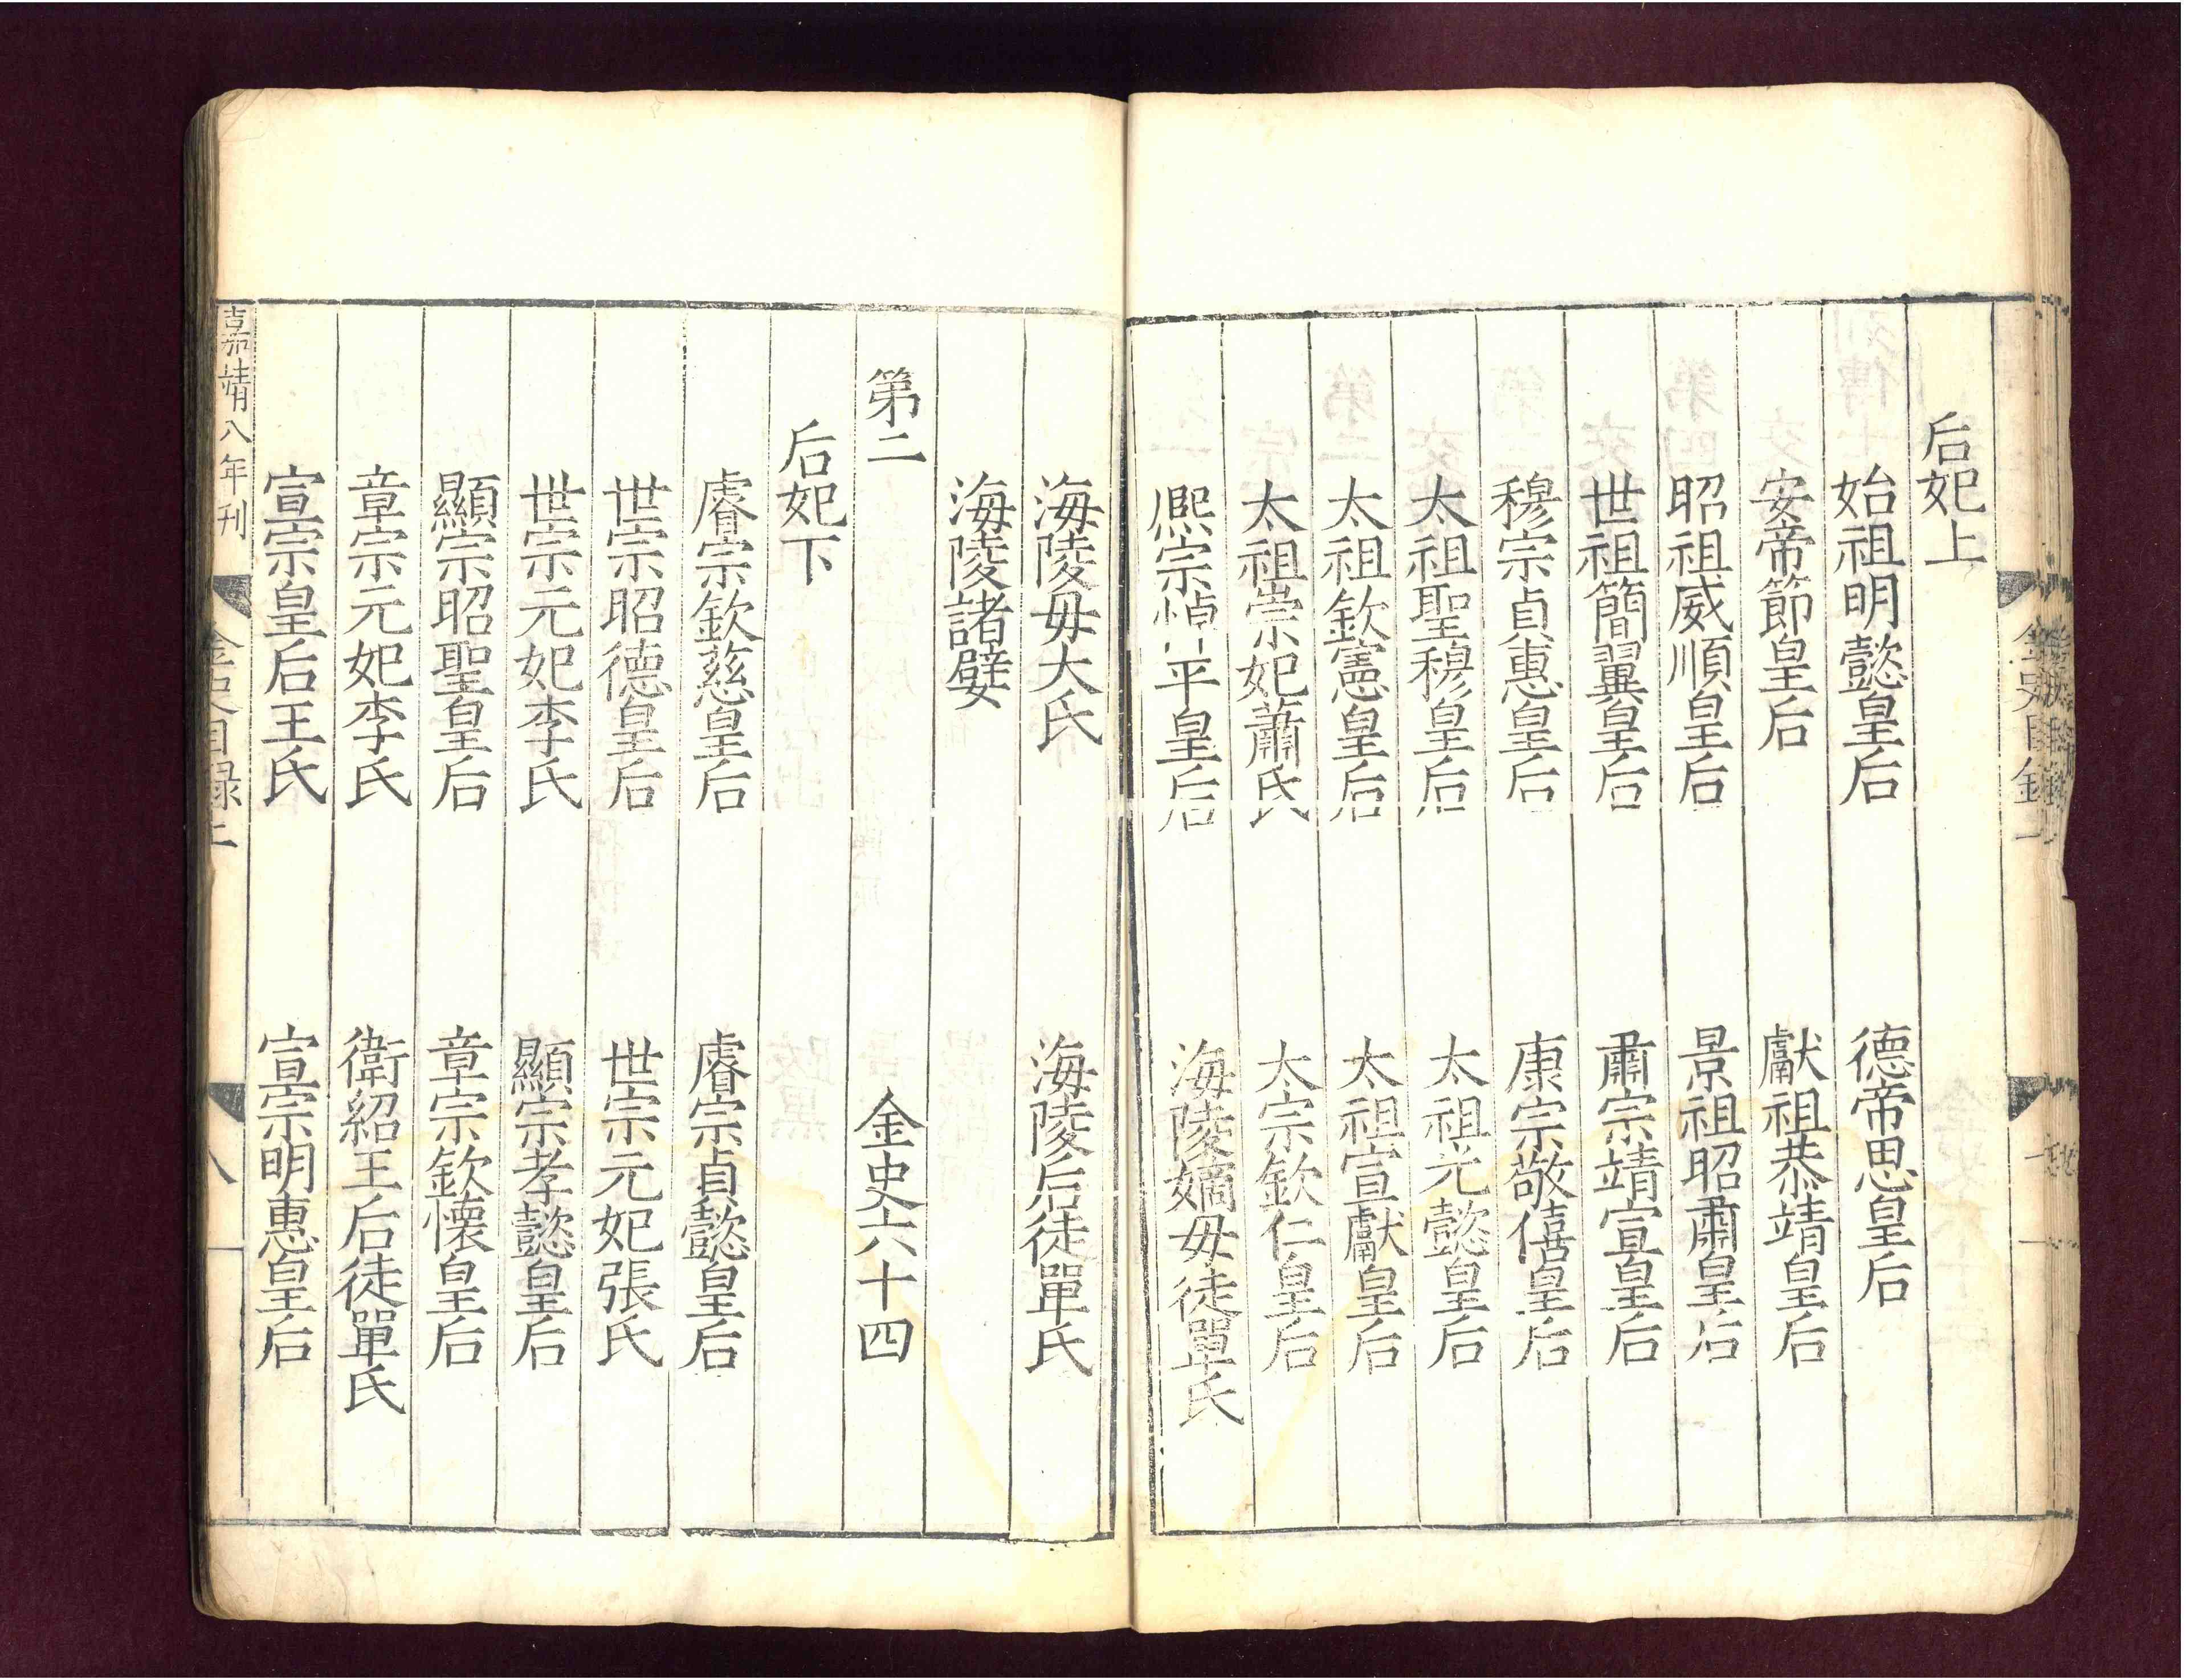 后妃上
始祖明懿皇后　德帝思皇后
安帝節皇后　獻祖恭靖皇后
昭祖威順皇后　景祖昭肅皇后
世祖簡翼皇后　肅宗靖宣皇后
穆宗貞惠皇后　康宗敬僖皇后
太祖聖穆皇后　太祖光懿皇后
太祖欽憲皇后　太祖宣獻皇后
太祖崇妃蕭氏　太宗欽仁皇后
熈宗悼平皇后　海陵嫡母徒單氏
海陵母大氏　海陵后徒單氏
海陵諸嬖
第二　金史六十四
后妃下
睿宗欽慈皇后　睿宗貞懿皇后
世宗昭德皇后　世宗元妃張氏
世宗元妃李氏　顯宗孝懿皇后
顯宗昭聖皇后　章宗欽懷皇后
章宗元妃李氏　衛紹王后徒單氏
宣宗皇后王氏　宣宗明惠皇后
嘉靖八年刊　金史目録上　八